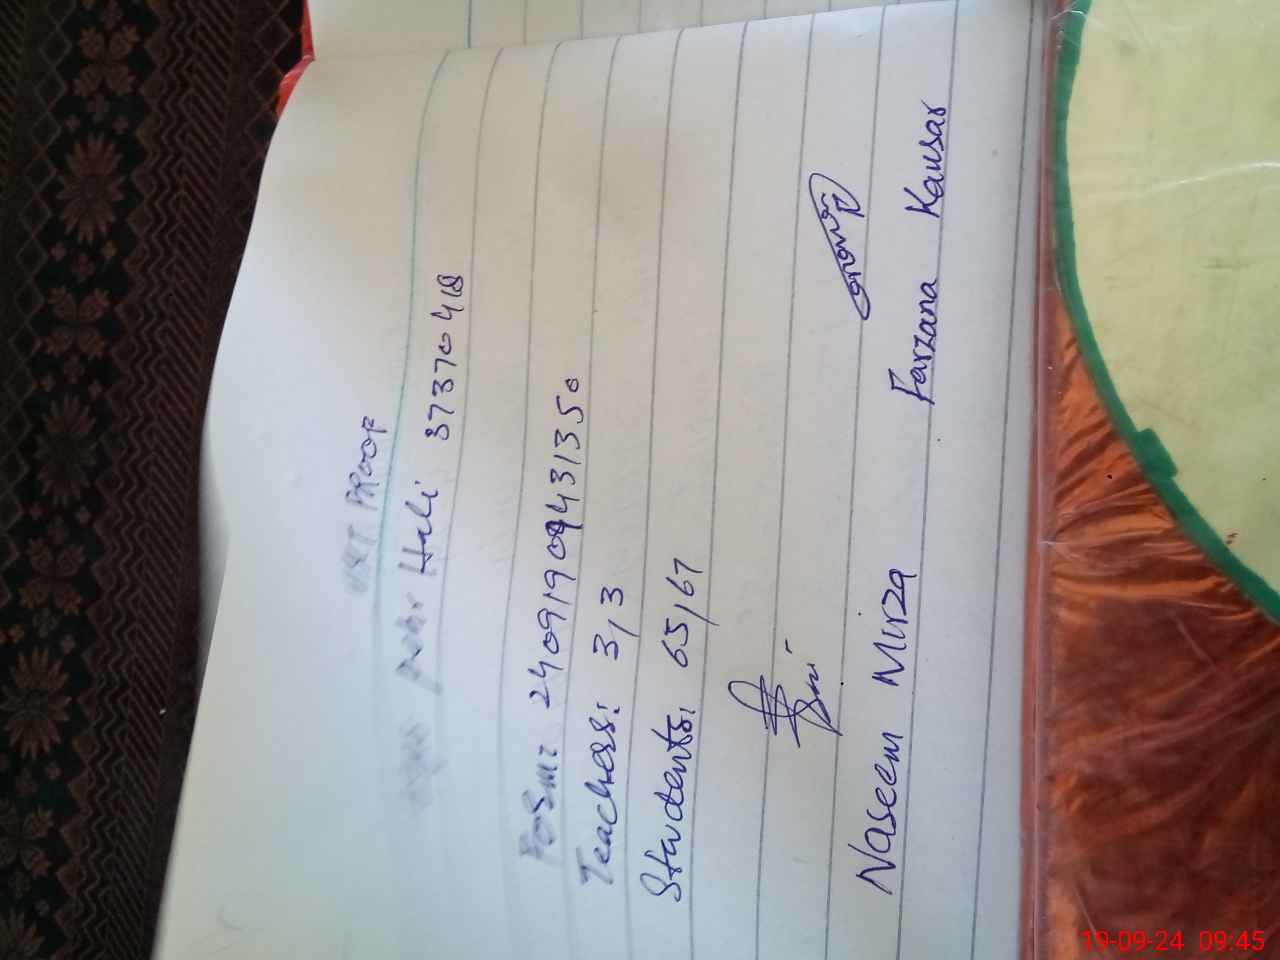 VISIT PROOF
Heli 37370418
Form: 24091909431350
Teachers: 3/3
Students: 65/67
Naseem Mirza Farzana Kausar
19-09-24 09:45